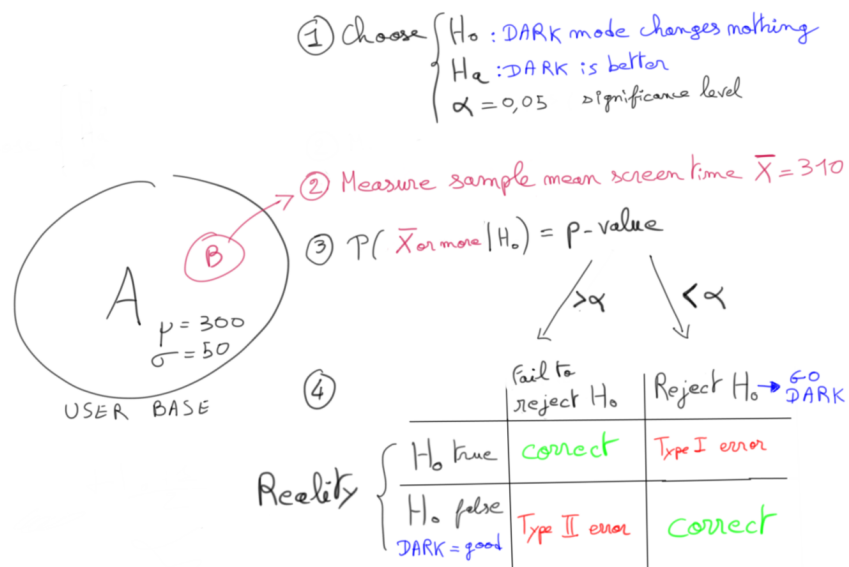 ① Choose { H₀ : DARK mode changes nothing
Ha : DARK is better
α = 0,05 significance level
② Measure sample mean screen time X̅ = 310
③ P( X̅ or more | H₀ ) = p-value
>α
<α
A
B
μ = 300
σ = 50
USER BASE
④
Fail to
reject H₀
Reject H₀ → GO
DARK
Reality {
H₀ true
correct
Type I error
H₀ false
DARK = good
Type II error
correct